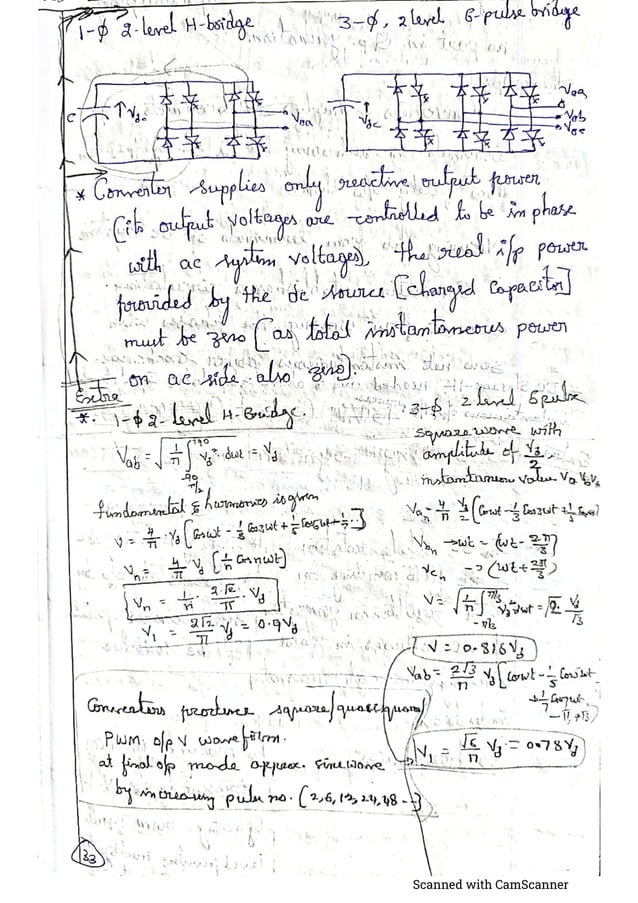 1-ϕ 2-level H-bridge
3-ϕ, 2 level 6-pulse bridge
C
↑Vdc
Voa
Vdc
Voa
Vob
Voc
* Converter supplies only reactive output power
(its output voltages are controlled to be in phase
with ac system voltages), the real i/p power
provided by the dc source [charged capacitor]
must be zero (as total instantaneous power
on ac side also zero).
Extra
*. 1-ϕ 2-level H-Bridge.
Vab = √(1/π ∫ Vd² dωt = Vd
fundamental & harmonics is given
V = 4/π · Vd [Cosωt - 1/3 Cos3ωt + 1/5 Cos5ωt + 1/7 ..]
Vn = 4/π Vd [1/n Cos nωt]
Vn = 1/n · 2·√2/π · Vd
V1 = 2√2/π Vd = 0.9Vd
3-ϕ, 2 level 6 pulse
square wave with
amplitude of Vd/2
instantaneous value Va Vb Vc
Van = 4/π Vd/2 [Cosωt - 1/3 Cos3ωt + 1/5
Vbn → ωt - (ωt - 2π/3)
Vcn → (ωt + 2π/3)
V = √(1/π ∫ Vd² dωt = √2 Vd/√3
V = 0.816Vd
Vab = 2√3/π Vd [Cosωt - 1/5 Cos5ωt
+ 1/7 Cos7ωt
V1 = √6/π Vd = 0.78Vd
Converters produce square/quasi square/
PWM, o/p V waveform.
at final o/p mode approx. sinewave
by increasing pulse no. (2,6,12,24,48 --)
33
Scanned with CamScanner